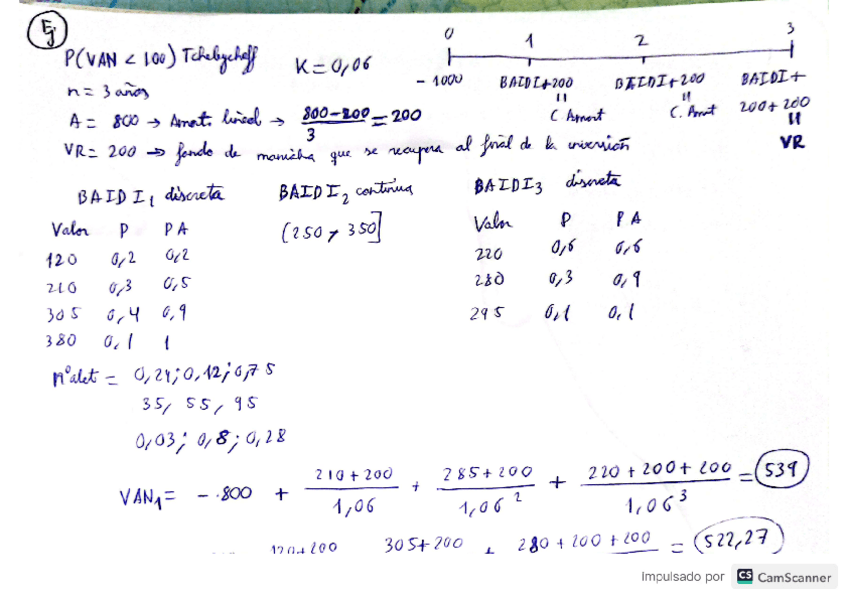 Ej
P(VAN < 100) Tchebycheff K = 0,06
n = 3 años
A = 800 → Amort. lineal → 800-200/3 = 200
VR = 200 → fondo de maniobra que se recupera al final de la inversión
0 1 2 3
- 1000 BAIDI+200 BAIDI+200 BAIDI+
200+200
C. Amort C. Amort VR
BAIDI1 discreta
Valor P PA
120 0,2 0,2
210 0,3 0,5
305 0,4 0,9
380 0,1 1
BAIDI2 continua
(250, 350]
BAIDI3 discreta
Valor P PA
220 0,6 0,6
280 0,3 0,9
295 0,1 0,1
nº alet = 0,24; 0,12; 0,75
35, 55, 95
0,03; 0,8; 0,28
VAN1 = -800 + 210+200/1,06 + 285+200/1,06² + 220+200+200/1,06³ = 539
120+200 305+200 + 280+200+200 = 522,27
Impulsado por CS CamScanner